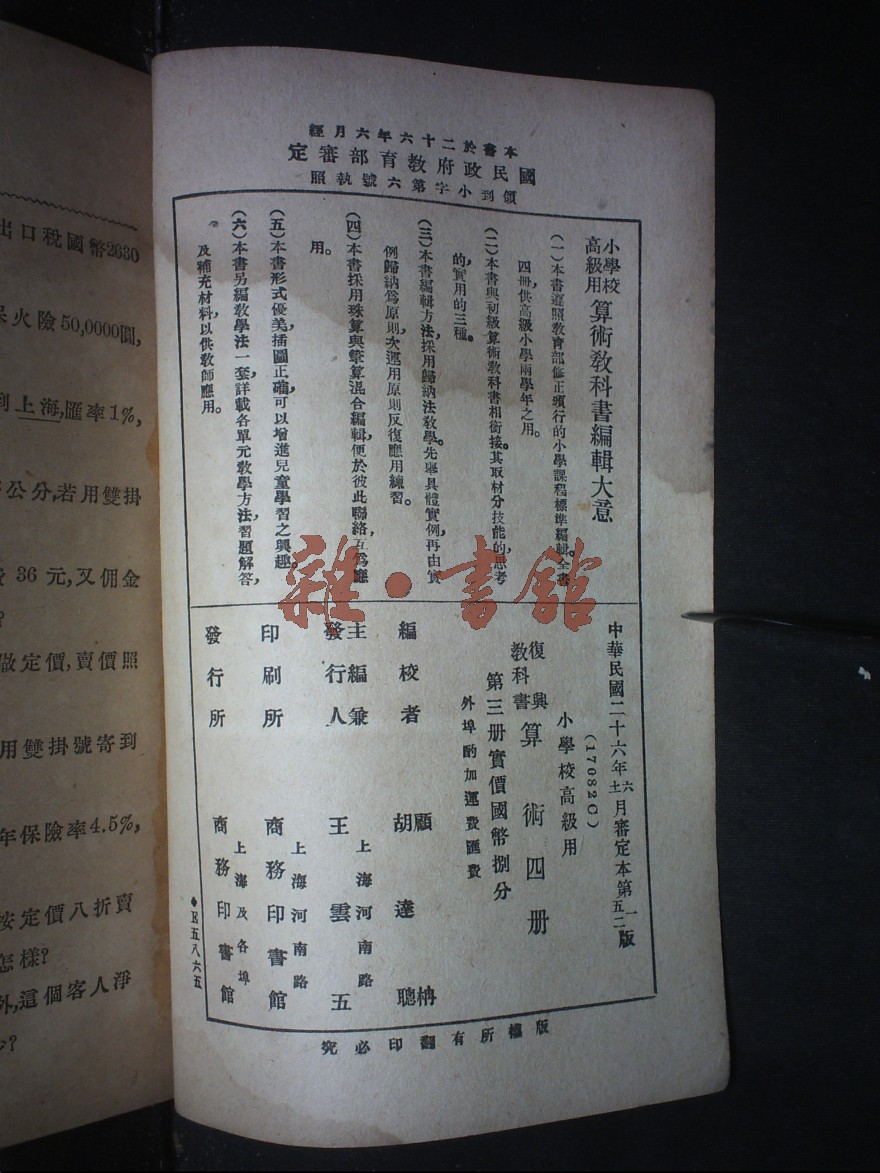 本書於二十六年六月經
國民政府教育部審定
領到小字第六號執照
小學校
高級用
算術教科書編輯大意
(一)本書遵照教育部修正頒行的小學課程標準編輯。全書
四冊,供高級小學兩學年之用。
(二)本書與初級算術教科書相銜接。其取材分技能的,思考
的,實用的三種。
(三)本書編輯方法,採用歸納法教學。先舉具體實例,再由實
例歸納爲原則,次運用原則反復應用練習。
(四)本書採用珠算與筆算混合編輯,便於彼此聯絡,互爲應
用。
(五)本書形式優美,插圖正確,可以增進兒童學習之興趣。
(六)本書另編教學法一套,詳載各單元教學方法,習題解答,
及補充材料,以供教師應用。
中華民國二十六年六月審定本第一版
十二 五二
(17082G)
小學校高級用
復興
教科書
算術四册
第三册實價國幣捌分
外埠酌加運費匯費
編校者 顧枬
胡達聰
主編兼
發行人 王雲五
上海河南路
印刷所 商務印書館
上海河南路
發行所 商務印書館
上海及各埠
◆E五八六五
版權所有翻印必究
出口稅國幣2630
火險50,0000圓,
到上海,匯率1%,
公分,若用雙掛
36元,又佣金
?
做定價,賣價照
用雙掛號寄到
年保險率4.5%,
按定價八折賣
怎樣?
外,這個客人淨
少?
雜·書館